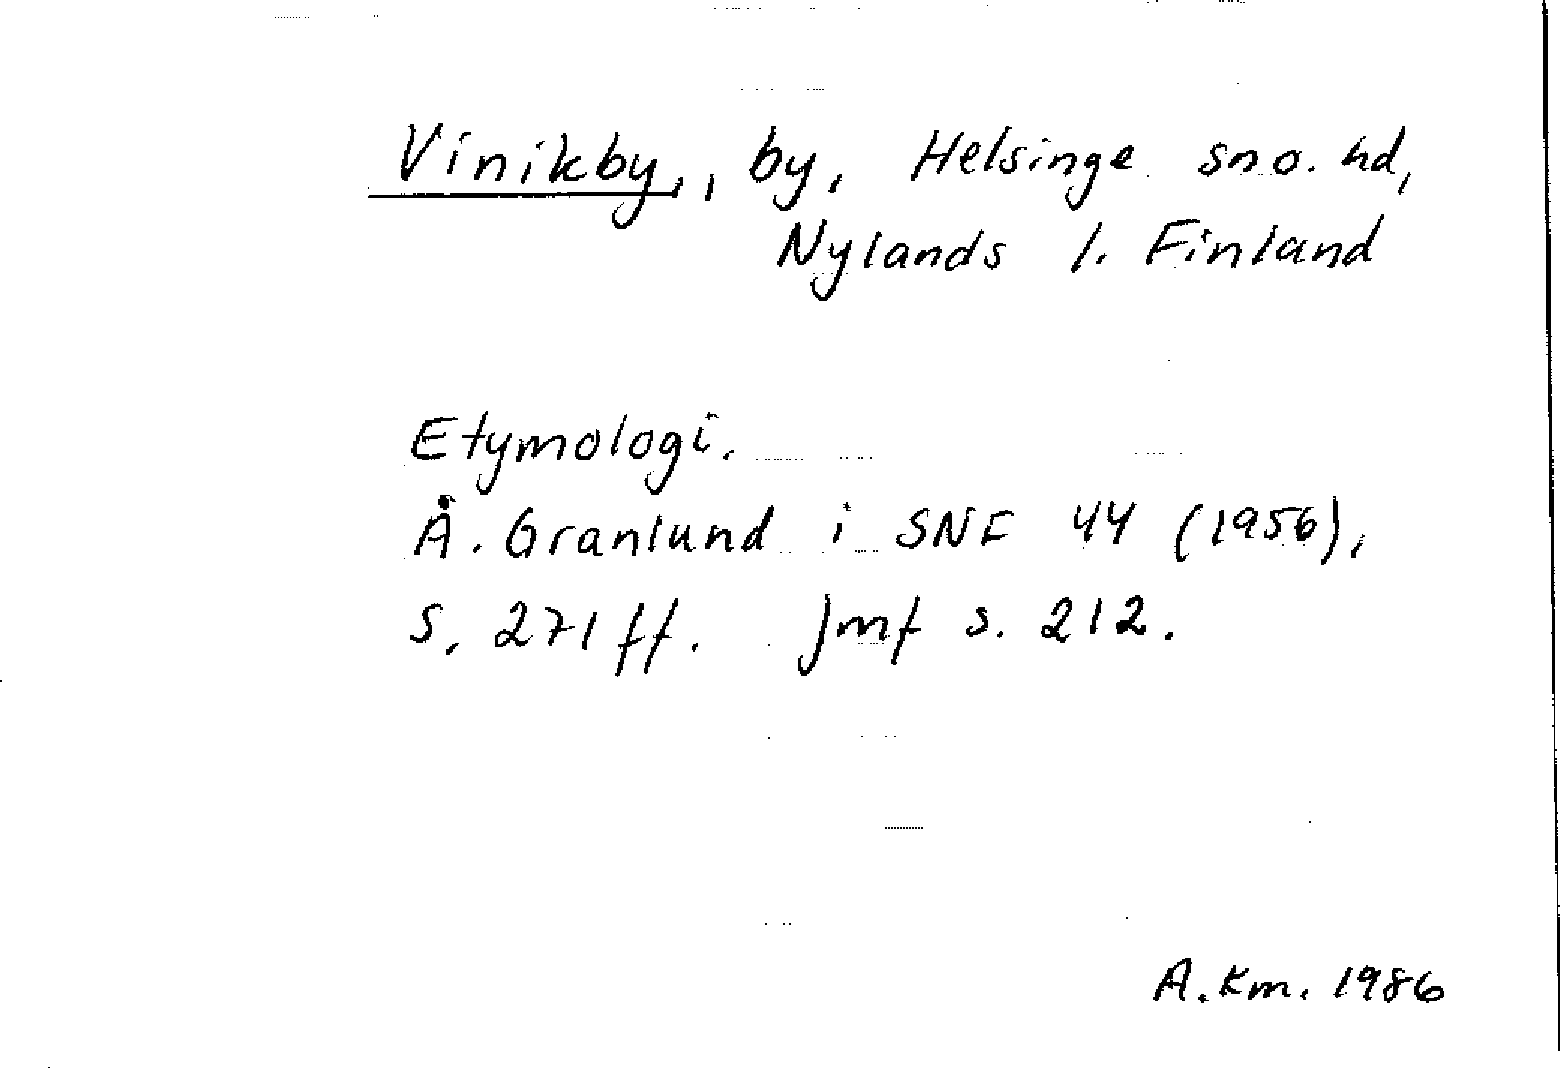 Vinikby,, by, Helsinge sno. hd,
Nylands l. Finland
Etymologi.
Å. Granlund i SNF 44 (1956),
s. 271 ff. Jmf s. 212.
A.Km. 1986